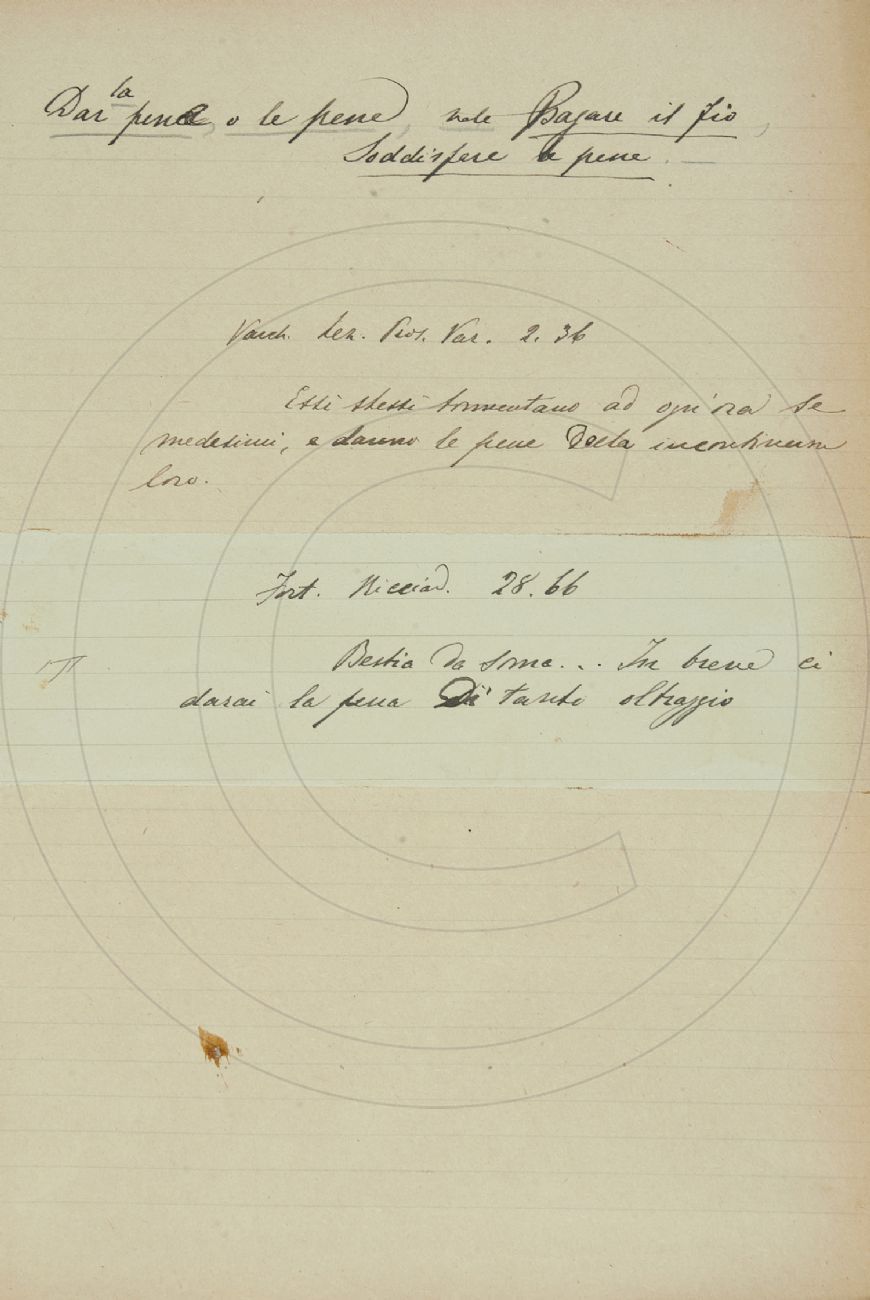 Dar la pena, o le pene, vale Pagare il fio,
Soddisfare le pene. —
Varch. Lez. Pros. Var. 2. 36
Essi stessi tormentano ad ogn'ora se
medesimi, e danno le pene Della incontinenza
loro.
Fort. Ricciard. 28. 66
Bestia da soma... In breve ci
darai la pena Di tanto oltraggio